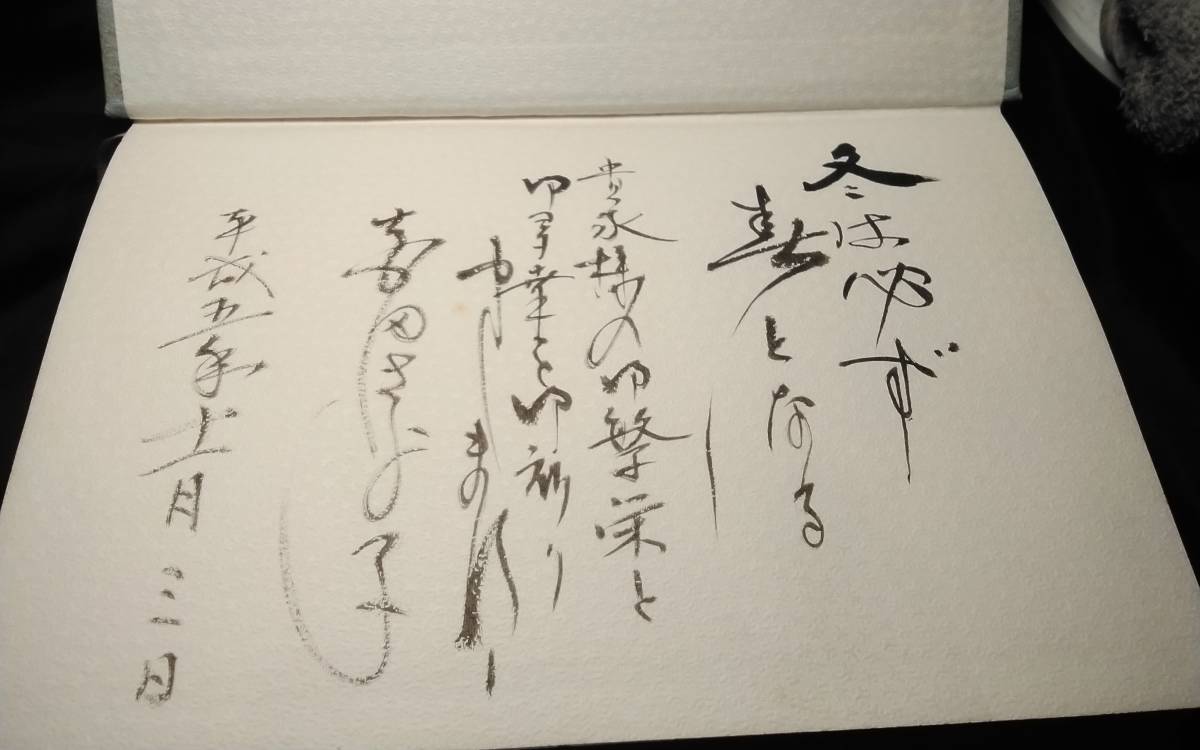 冬は必ず
春となる
貴家様の御繁栄と
御多幸を御祈り
申します
寿田さよ子
平成五年十一月三日